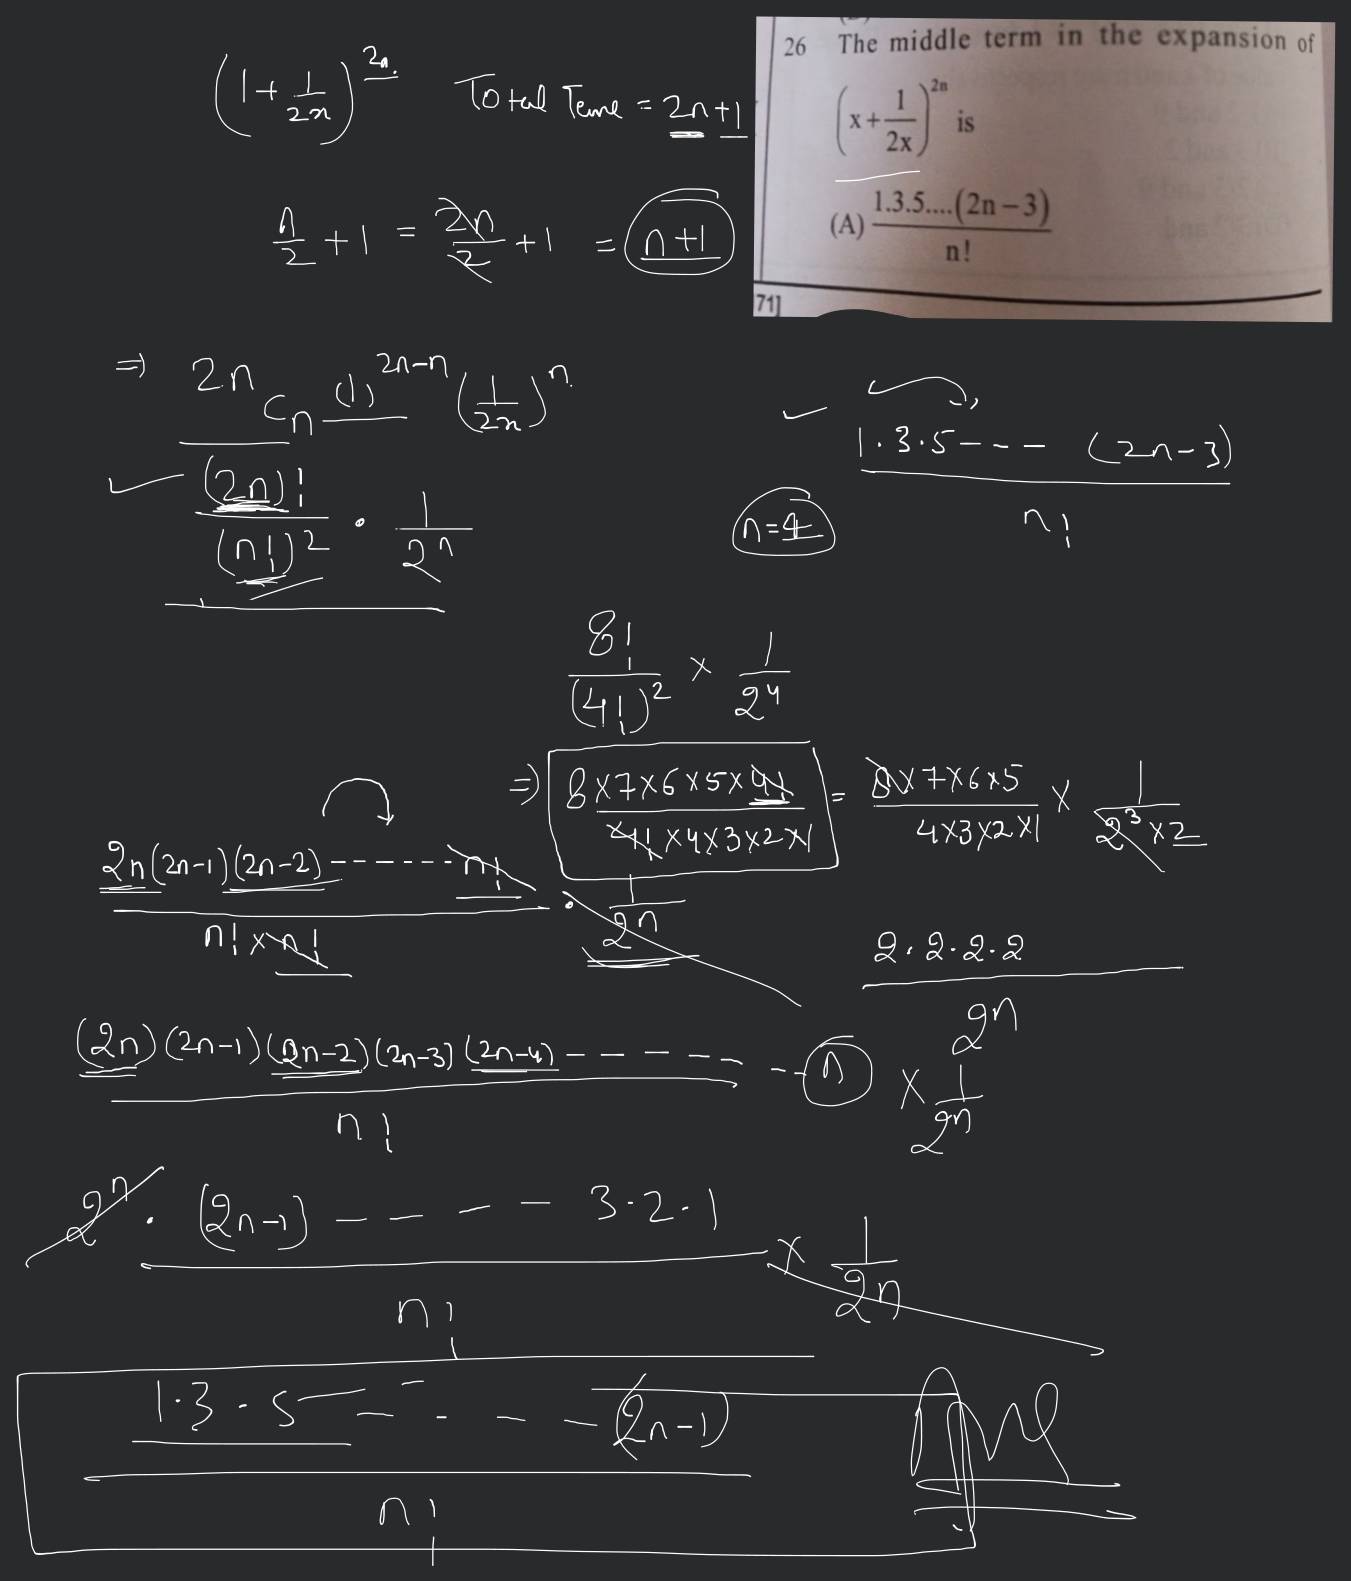 (1 + 1/2x)^2n. Total Terms = 2n+1
26 The middle term in the expansion of
(x + 1/2x)^2n is
(A) 1.3.5....(2n – 3) / n!
71]
n/2 + 1 = 2n/2 + 1 = n+1
⇒ 2n C n (1)^2n-n (1/2x)^n
✓ 1·3·5--- (2n-3) / n!
✓ (2n)! / (n!)^2 · 1/2^n
n=4
8! / (4!)^2 × 1/2^4
⇒ 8×7×6×5×4! / 4!×4×3×2×1 = 8×7×6×5 / 4×3×2×1 × 1/2^3×2
2n(2n-1)(2n-2)-------n! / n!×n! · 1/2^n
2·2·2·2 / 2^n
(2n)(2n-1)(2n-2)(2n-3)(2n-4)-------- n / n! × 1/2^n
2^n · (2n-1) ---- 3·2·1 / n! × 1/2^n
1·3·5------(2n-1) / n!